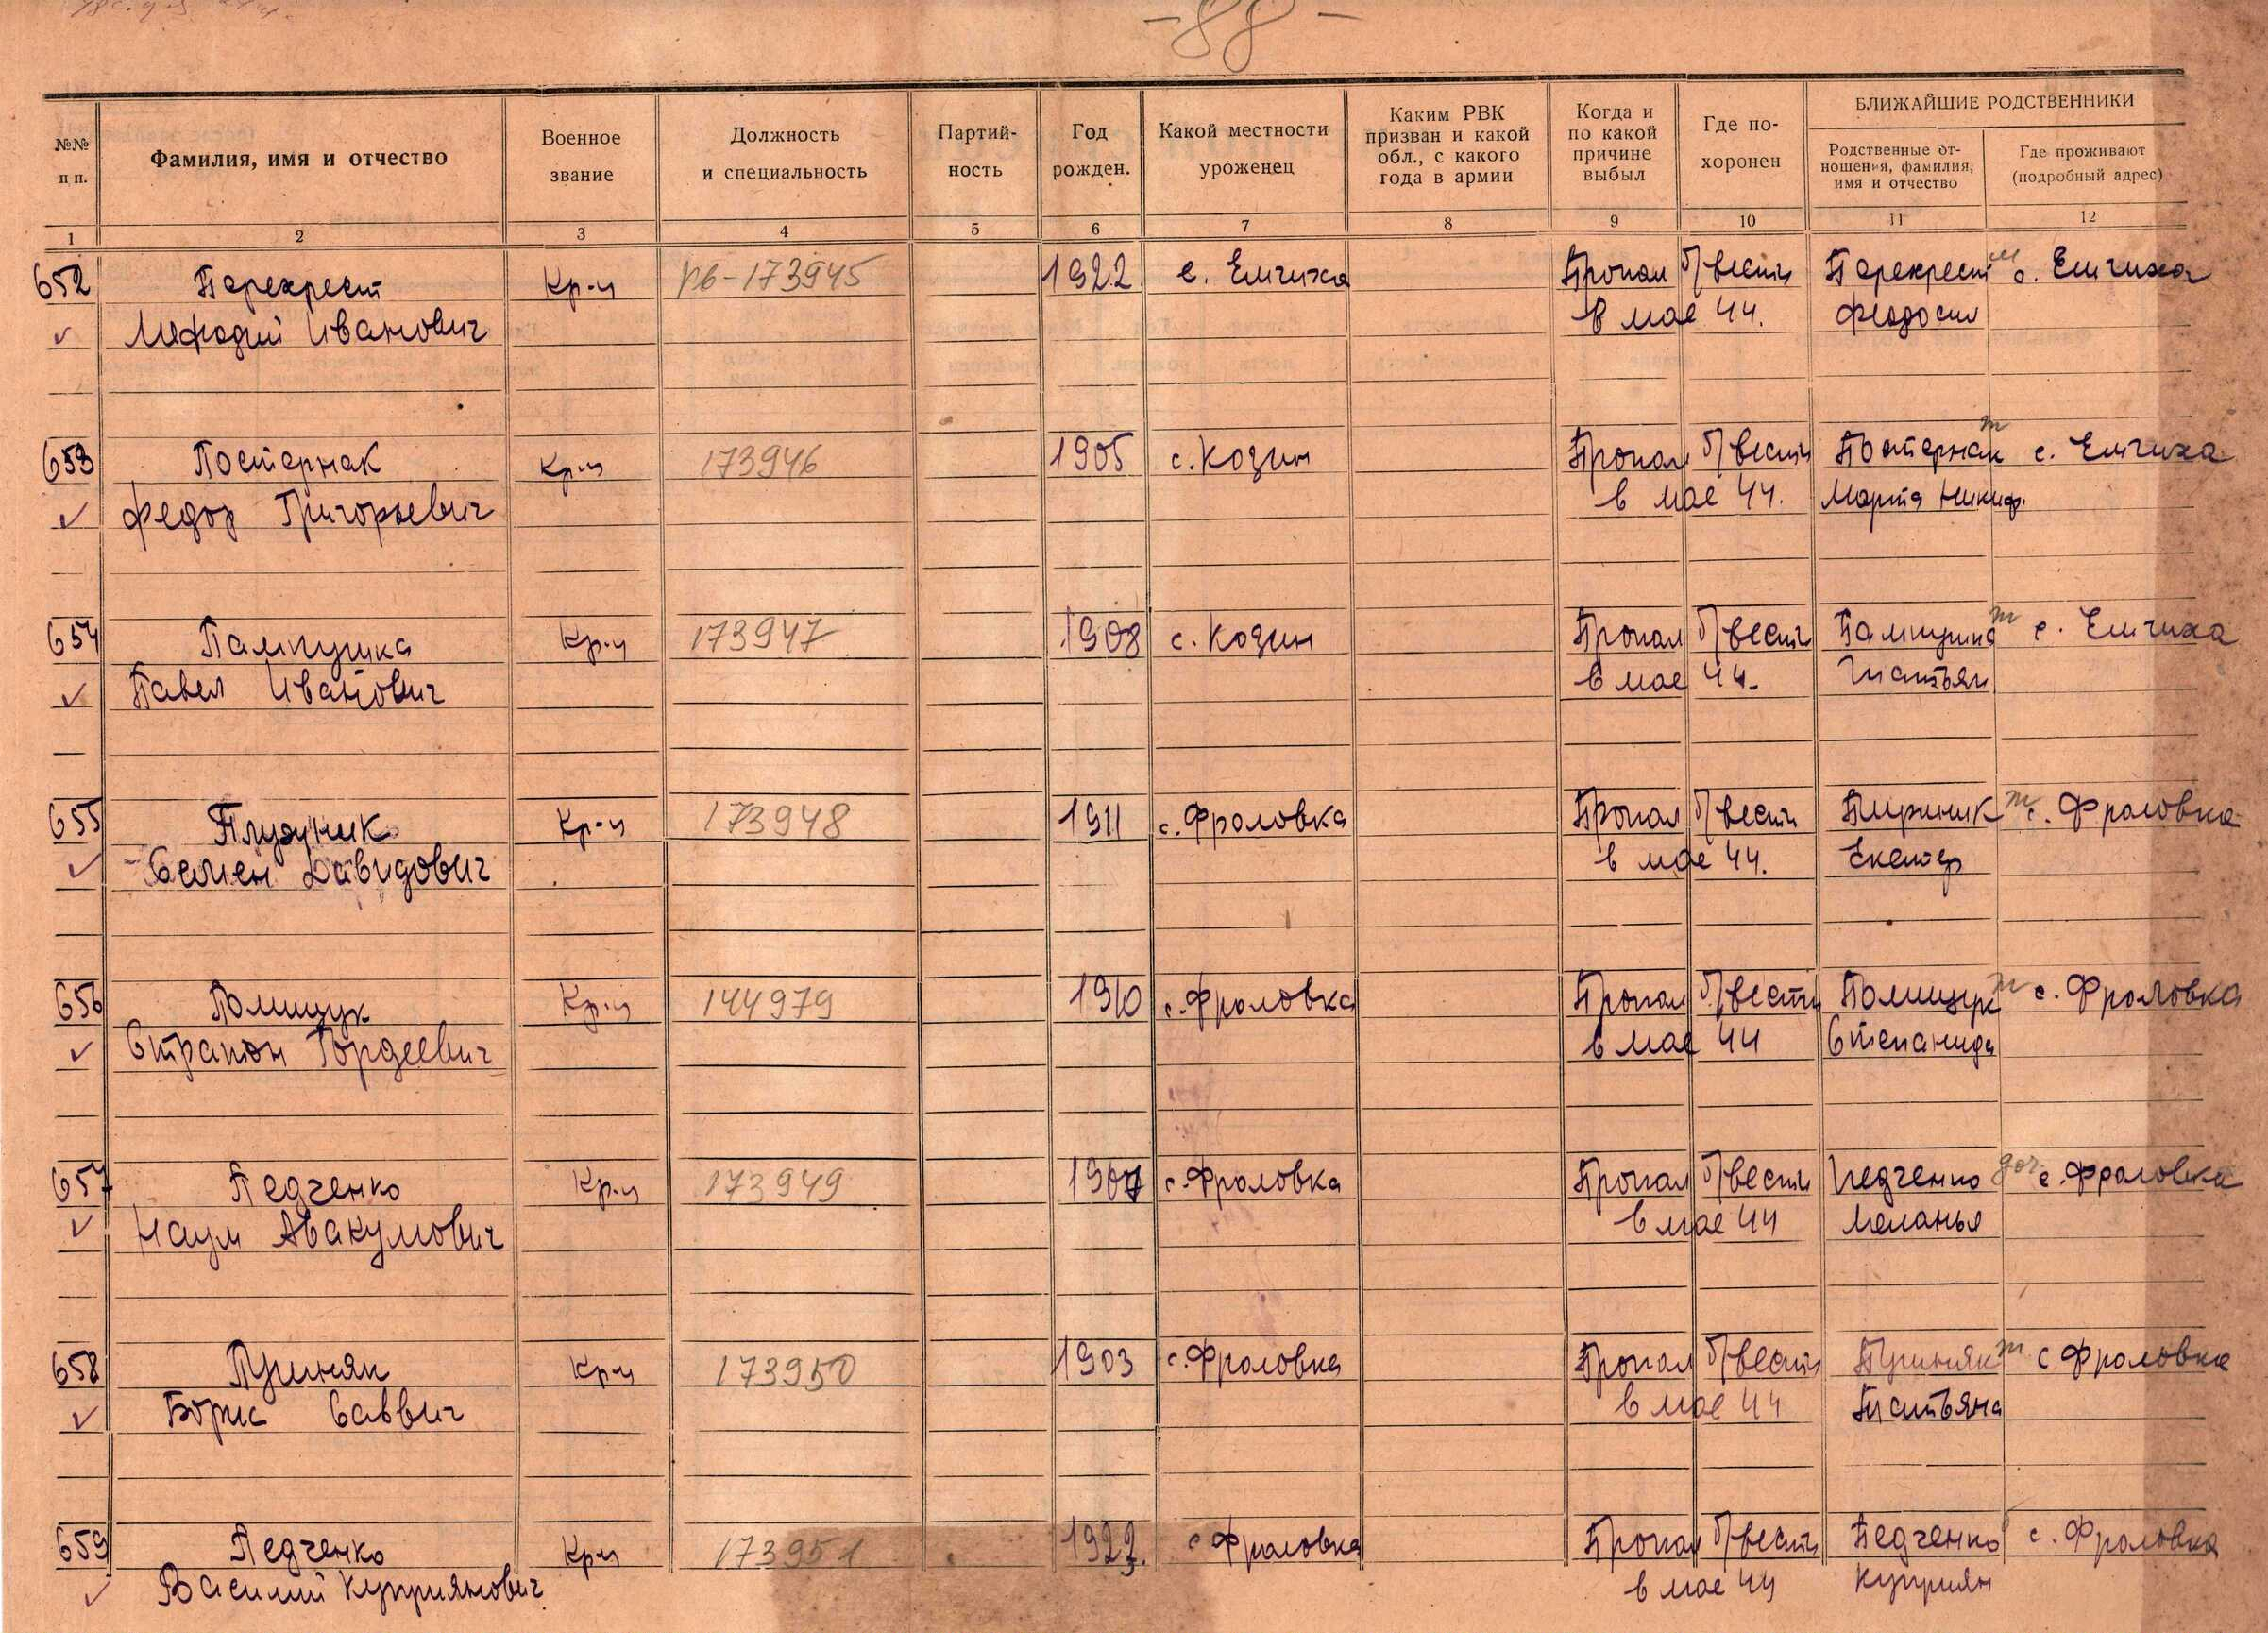 -88-
№№ п п.
Фамилия, имя и отчество
Военное звание
Должность и специальность
Партий- ность
Год рожден.
Какой местности уроженец
Каким РВК призван и какой обл., с какого года в армии
Когда и по какой причине выбыл
Где по- хоронен
БЛИЖАЙШИЕ РОДСТВЕННИКИ
Родственные от- ношения, фамилия, имя и отчество
Где проживают (подробный адрес)
1 2 3 4 5 6 7 8 9 10 11 12
652 Перекрест Кр-ц 173945 1922 с. Емчиха Пропал б/вести Перекрест с. Емчиха
Мефодий Иванович в мае 44. Феодосия
653 Постернак Кр-ц 173946 1905 с. Козин Пропал б/вести Постернак с. Емчиха
Федор Григорьевич в мае 44. Марта Никиф.
654 Пампушка Кр-ц 173947 1908 с. Козин Пропал б/вести Пампушка с. Емчиха
Павел Иванович в мае 44.
655 Кр-ц 173948 1911 с. Фроловка Пропал б/вести с. Фроловка
Семен Давидович в мае 44. Екатер
656 Полищук Кр-ц 144979 1910 с. Фроловка Пропал б/вести Полищук с. Фроловка
Стратон Гордеевич в мае 44 Степанида
657 Педченко Кр-ц 173949 с. Фроловка Пропал б/вести Педченко доч. с. Фроловка
Наум Авакумович в мае 44 Меланья
658 Пушняк Кр-ц 173950 1903 с. Фроловка Пропал б/вести Пушняк с Фроловка
Борис Саввич в мае 44 Татьяна
659 Педченко Кр-ц 173951 с Фроловка Пропал б/вести Педченко с. Фроловка
Василий Куприянович в мае 44 Куприян